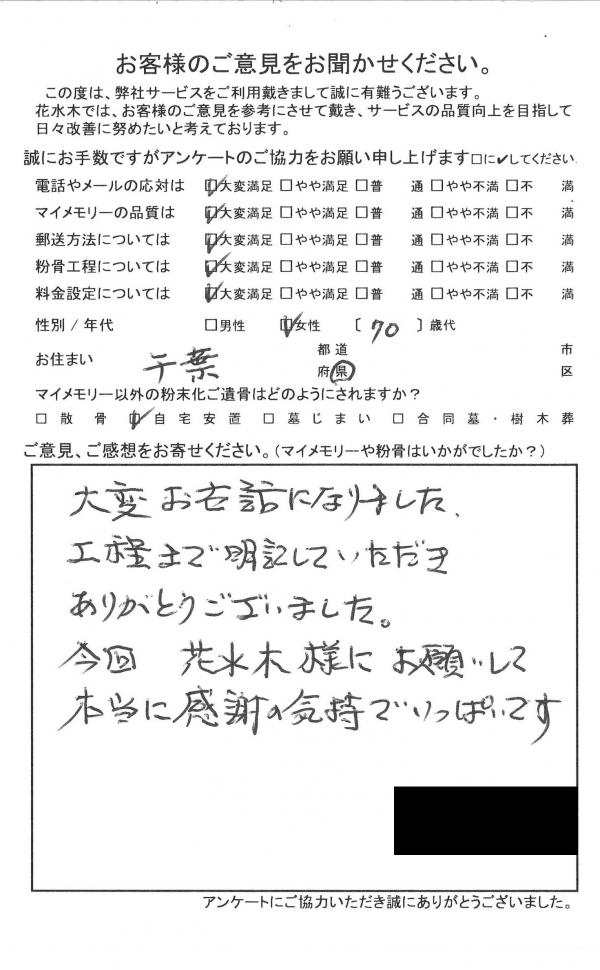 お客様のご意見をお聞かせください。
この度は、弊社サービスをご利用戴きまして誠に有難うございます。
花水木では、お客様のご意見を参考にさせて戴き、サービスの品質向上を目指して
日々改善に努めたいと考えております。
誠にお手数ですがアンケートのご協力をお願い申し上げます□に✓してください。
電話やメールの応対は ☑大変満足 □やや満足 □普 通 □やや不満 □不 満
マイメモリーの品質は ☑大変満足 □やや満足 □普 通 □やや不満 □不 満
郵送方法については ☑大変満足 □やや満足 □普 通 □やや不満 □不 満
粉骨工程については ☑大変満足 □やや満足 □普 通 □やや不満 □不 満
料金設定については ☑大変満足 □やや満足 □普 通 □やや不満 □不 満
性別 / 年代 □男性 ☑女性 〔 70 〕歳代
お住まい 千葉 都 道 府 県 市 区
マイメモリー以外の粉末化ご遺骨はどのようにされますか？
□ 散 骨 ☑ 自 宅 安 置 □ 墓 じ ま い □ 合 同 墓 ・ 樹 木 葬
ご意見、ご感想をお寄せください。（マイメモリーや粉骨はいかがでしたか？）
大変お世話になりました、
工程まで明記していただき
ありがとうございました。
今回 花水木様にお願いして
本当に感謝の気持でいっぱいです
アンケートにご協力いただき誠にありがとうございました。